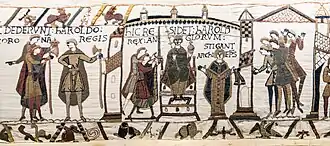 C DEDERVNT: hAROLDO:
CORO NA REGIS
hIC RE SIDET: hAROLD
REX: AN GLORVM:
STIGANT
ARChI EPS